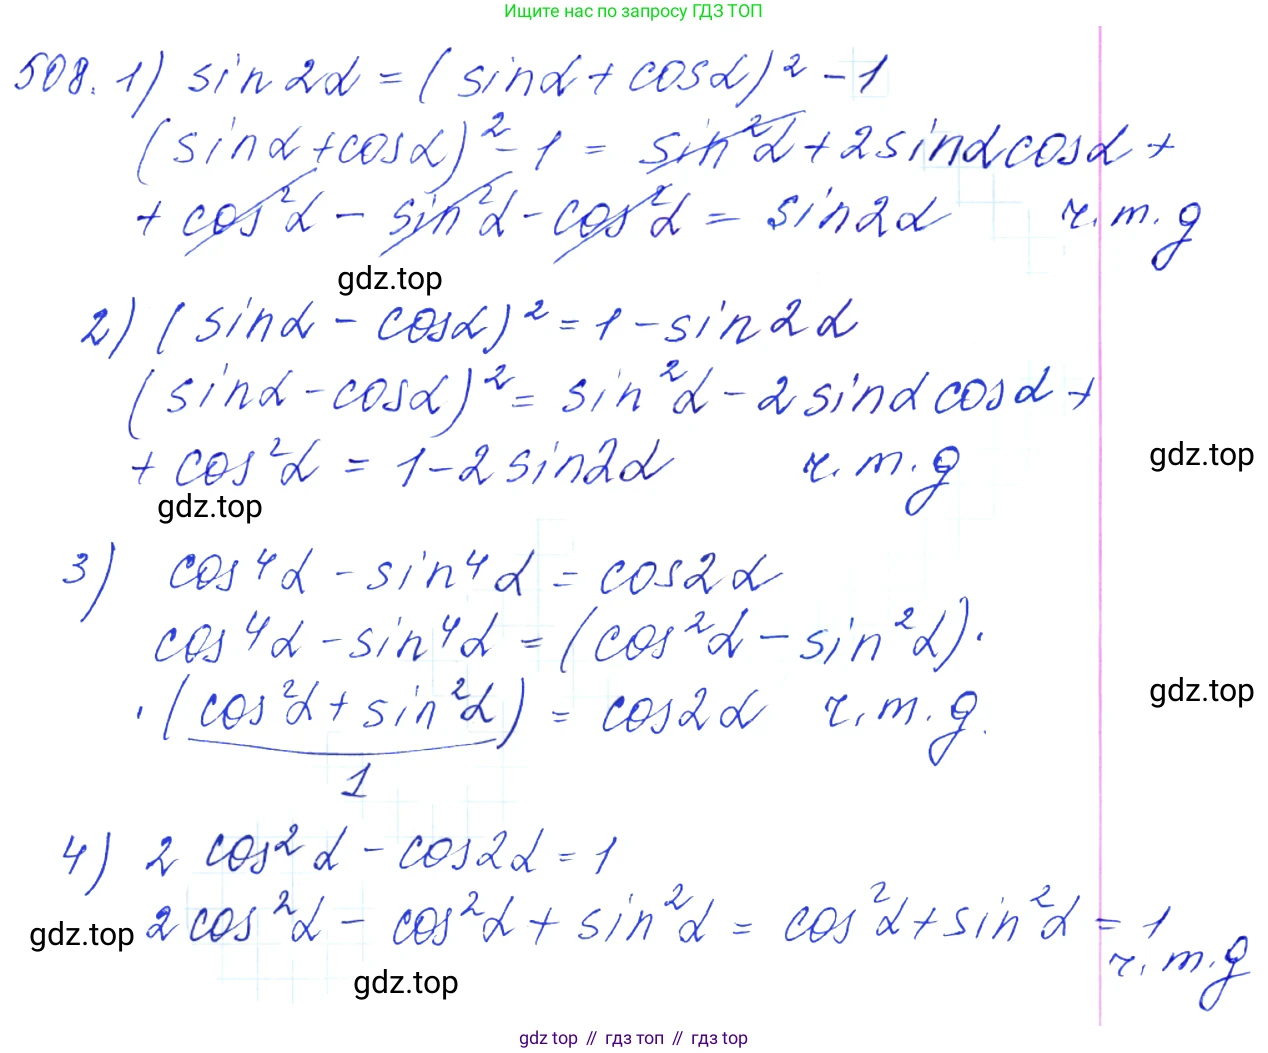 Ищите нас по запросу ГДЗ ТОП
508. 1) sin2α = (sinα + cosα)² - 1
(sinα + cosα)² - 1 = sin²α + 2sinαcosα +
+ cos²α - sin²α - cos²α = sin2α ч.т.д
gdz.top
2) (sinα - cosα)² = 1 - sin2α
(sinα - cosα)² = sin²α - 2sinαcosα +
+ cos²α = 1 - 2sin2α ч.т.д
gdz.top
gdz.top
3) cos⁴α - sin⁴α = cos2α
cos⁴α - sin⁴α = (cos²α - sin²α)·
·(cos²α + sin²α) = cos2α ч.т.д.
gdz.top
1
4) 2cos²α - cos2α = 1
2cos²α - cos²α + sin²α = cos²α + sin²α = 1
gdz.top
ч.т.д
gdz.top
gdz top // гдз топ // гдз top